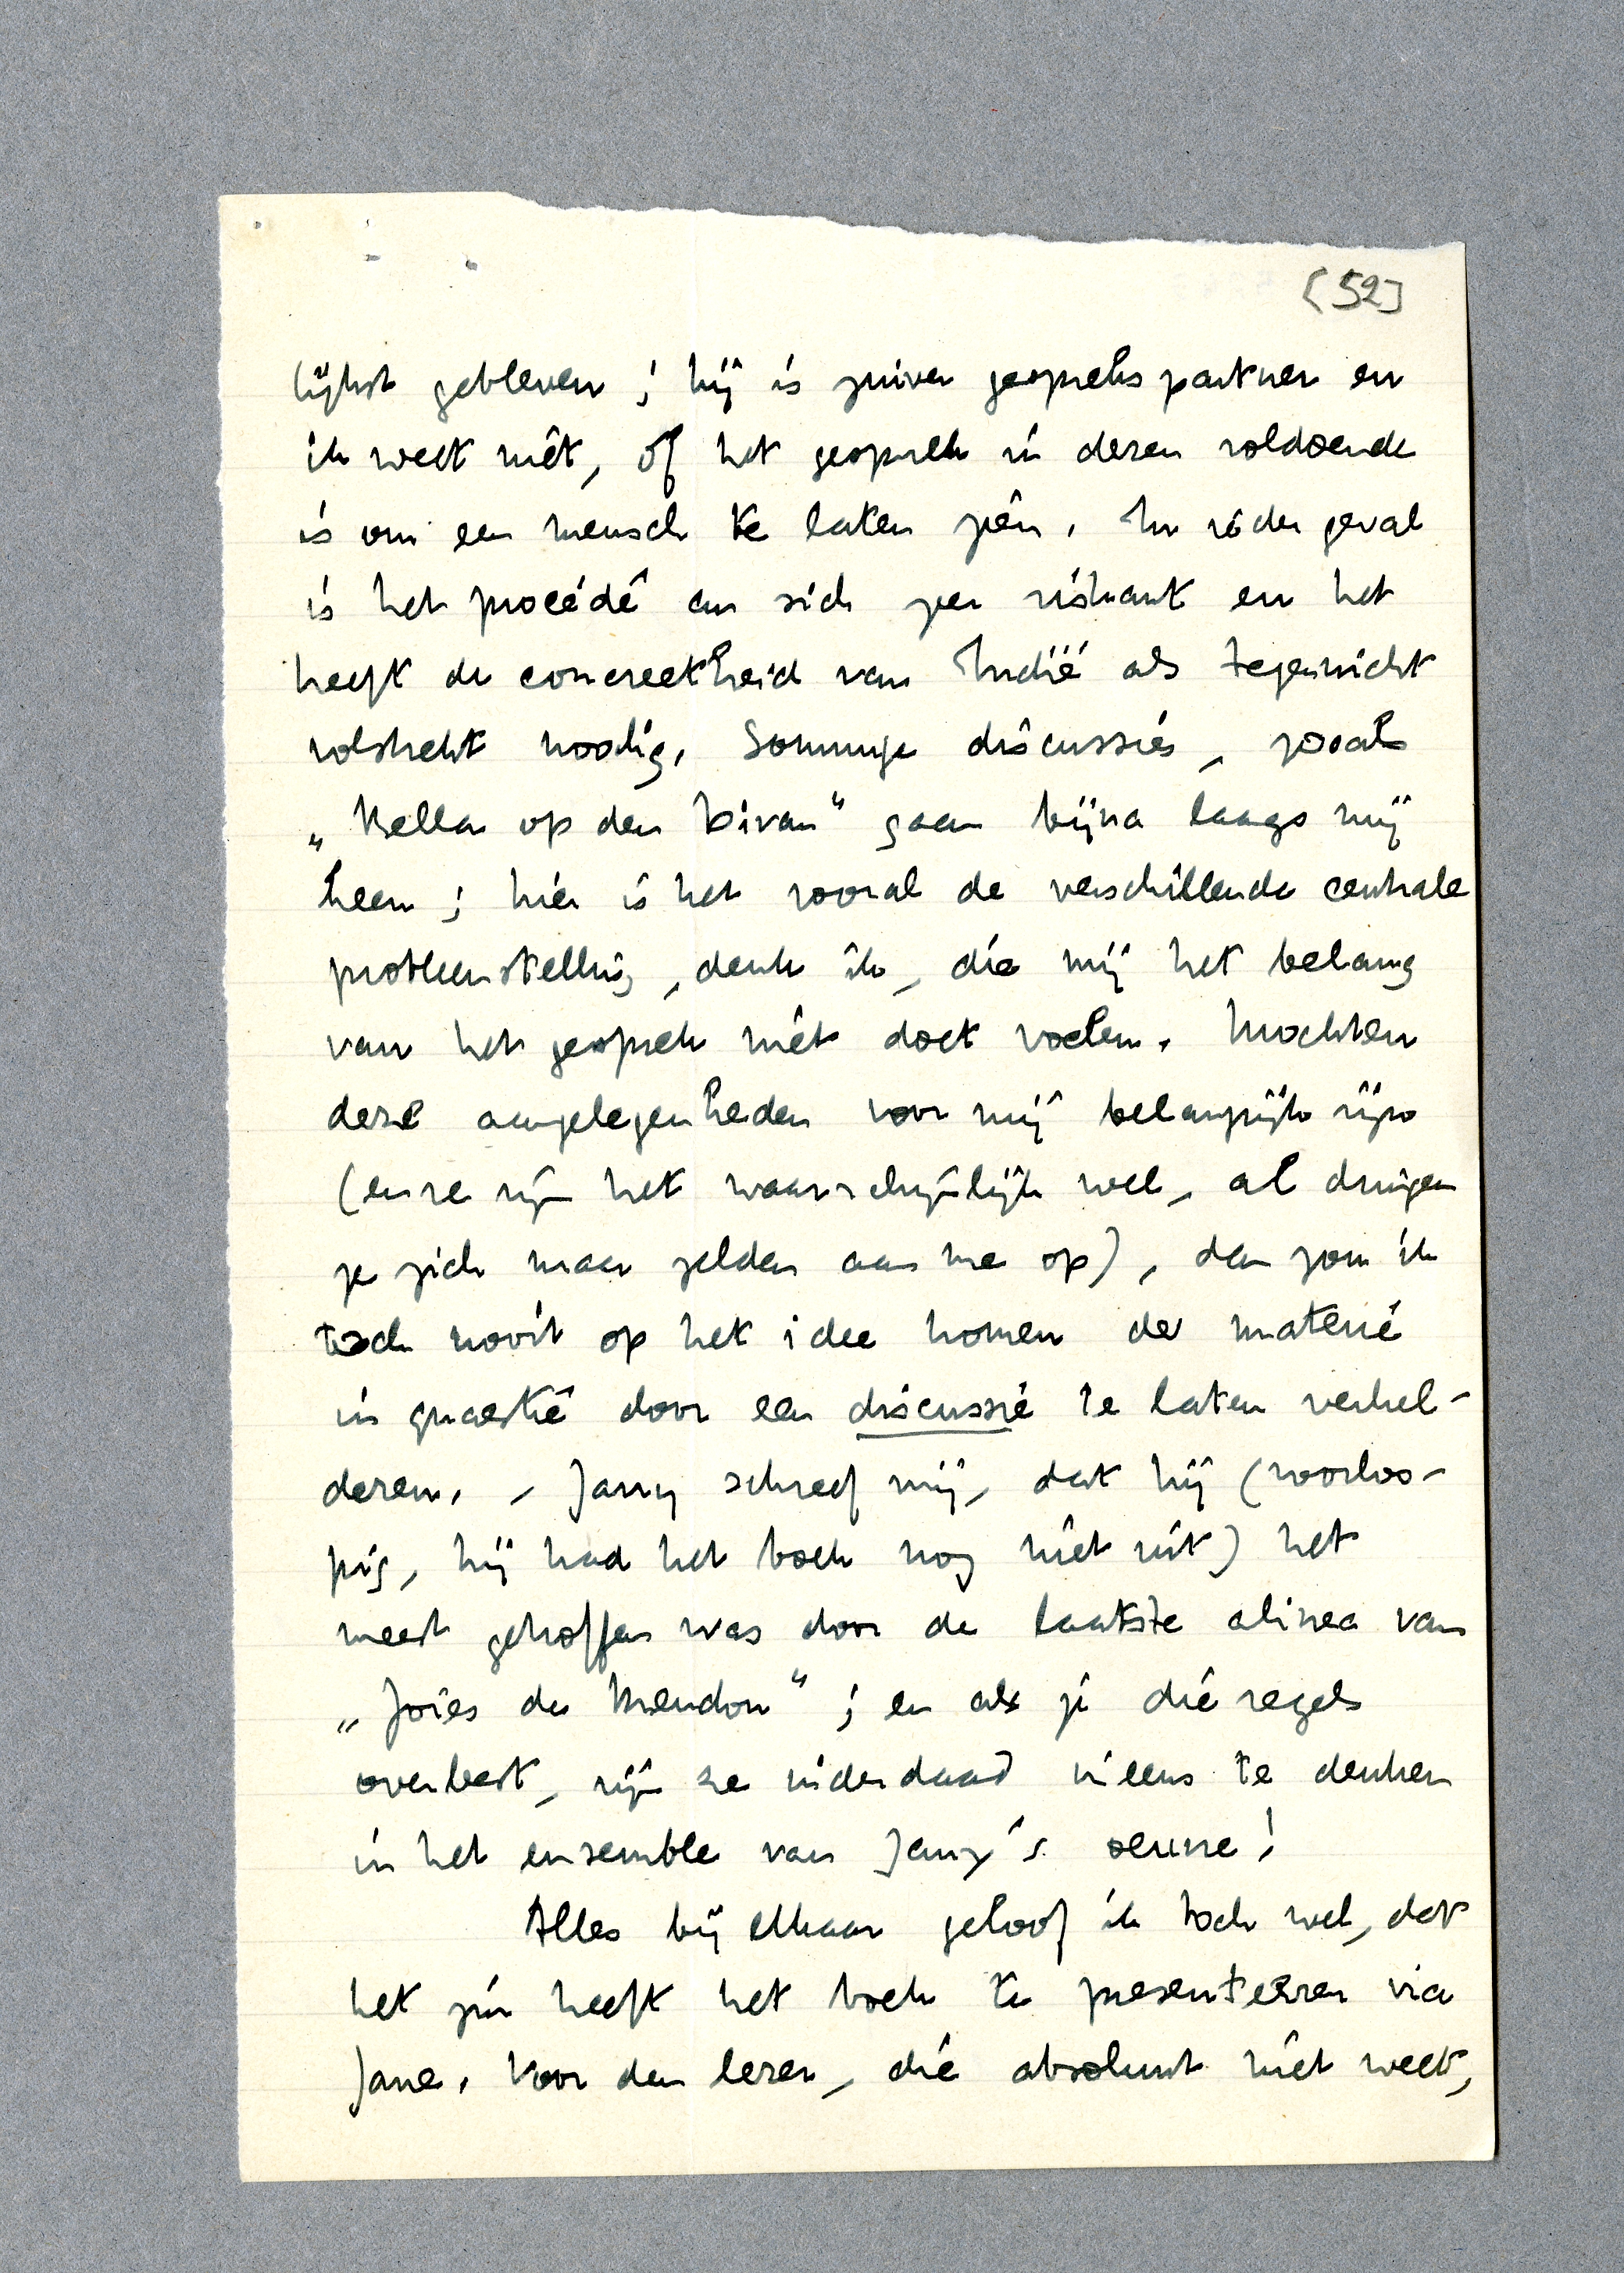 [52]
lijkst gebleven; hij is zuiver gesprekspartner en
ik weet niet, of het gesprek in dezen voldoende
is om een mensch te laten zien. In ieder geval
is het procédé an sich zeer riskant en het
heeft de concreetheid van Indië als tegenwicht
volstrekt noodig. Sommige discussies, zooals
„Bella op den Divan” gaan bijna langs mij
heen; hier is het vooral de verschillende centrale
probleemstelling, denk ik, die mij het belang
van het gesprek niet doet voelen. Mochten
deze aangelegenheden voor mij belangrijk zijn
(en ze zijn het waarschijnlijk wel, al dringen
ze zich maar zelden aan me op), dan zou ik
toch nooit op het idee komen de materie
in quaestie door een discussie te laten verhel-
deren. - Jany schreef mij, dat hij (voorloo-
pig, hij had het boek nog niet uit) het
meest getroffen was door de laatste alinea van
„Joies de Meudon”; en als je die regels
overleest, zijn ze inderdaad ineens te denken
in het ensemble van Jany's oeuvre!
Alles bij elkaar geloof ik toch wel, dat
het zin heeft het boek te presenteeren via
Jane. Voor den lezer, die absoluut niet weet,